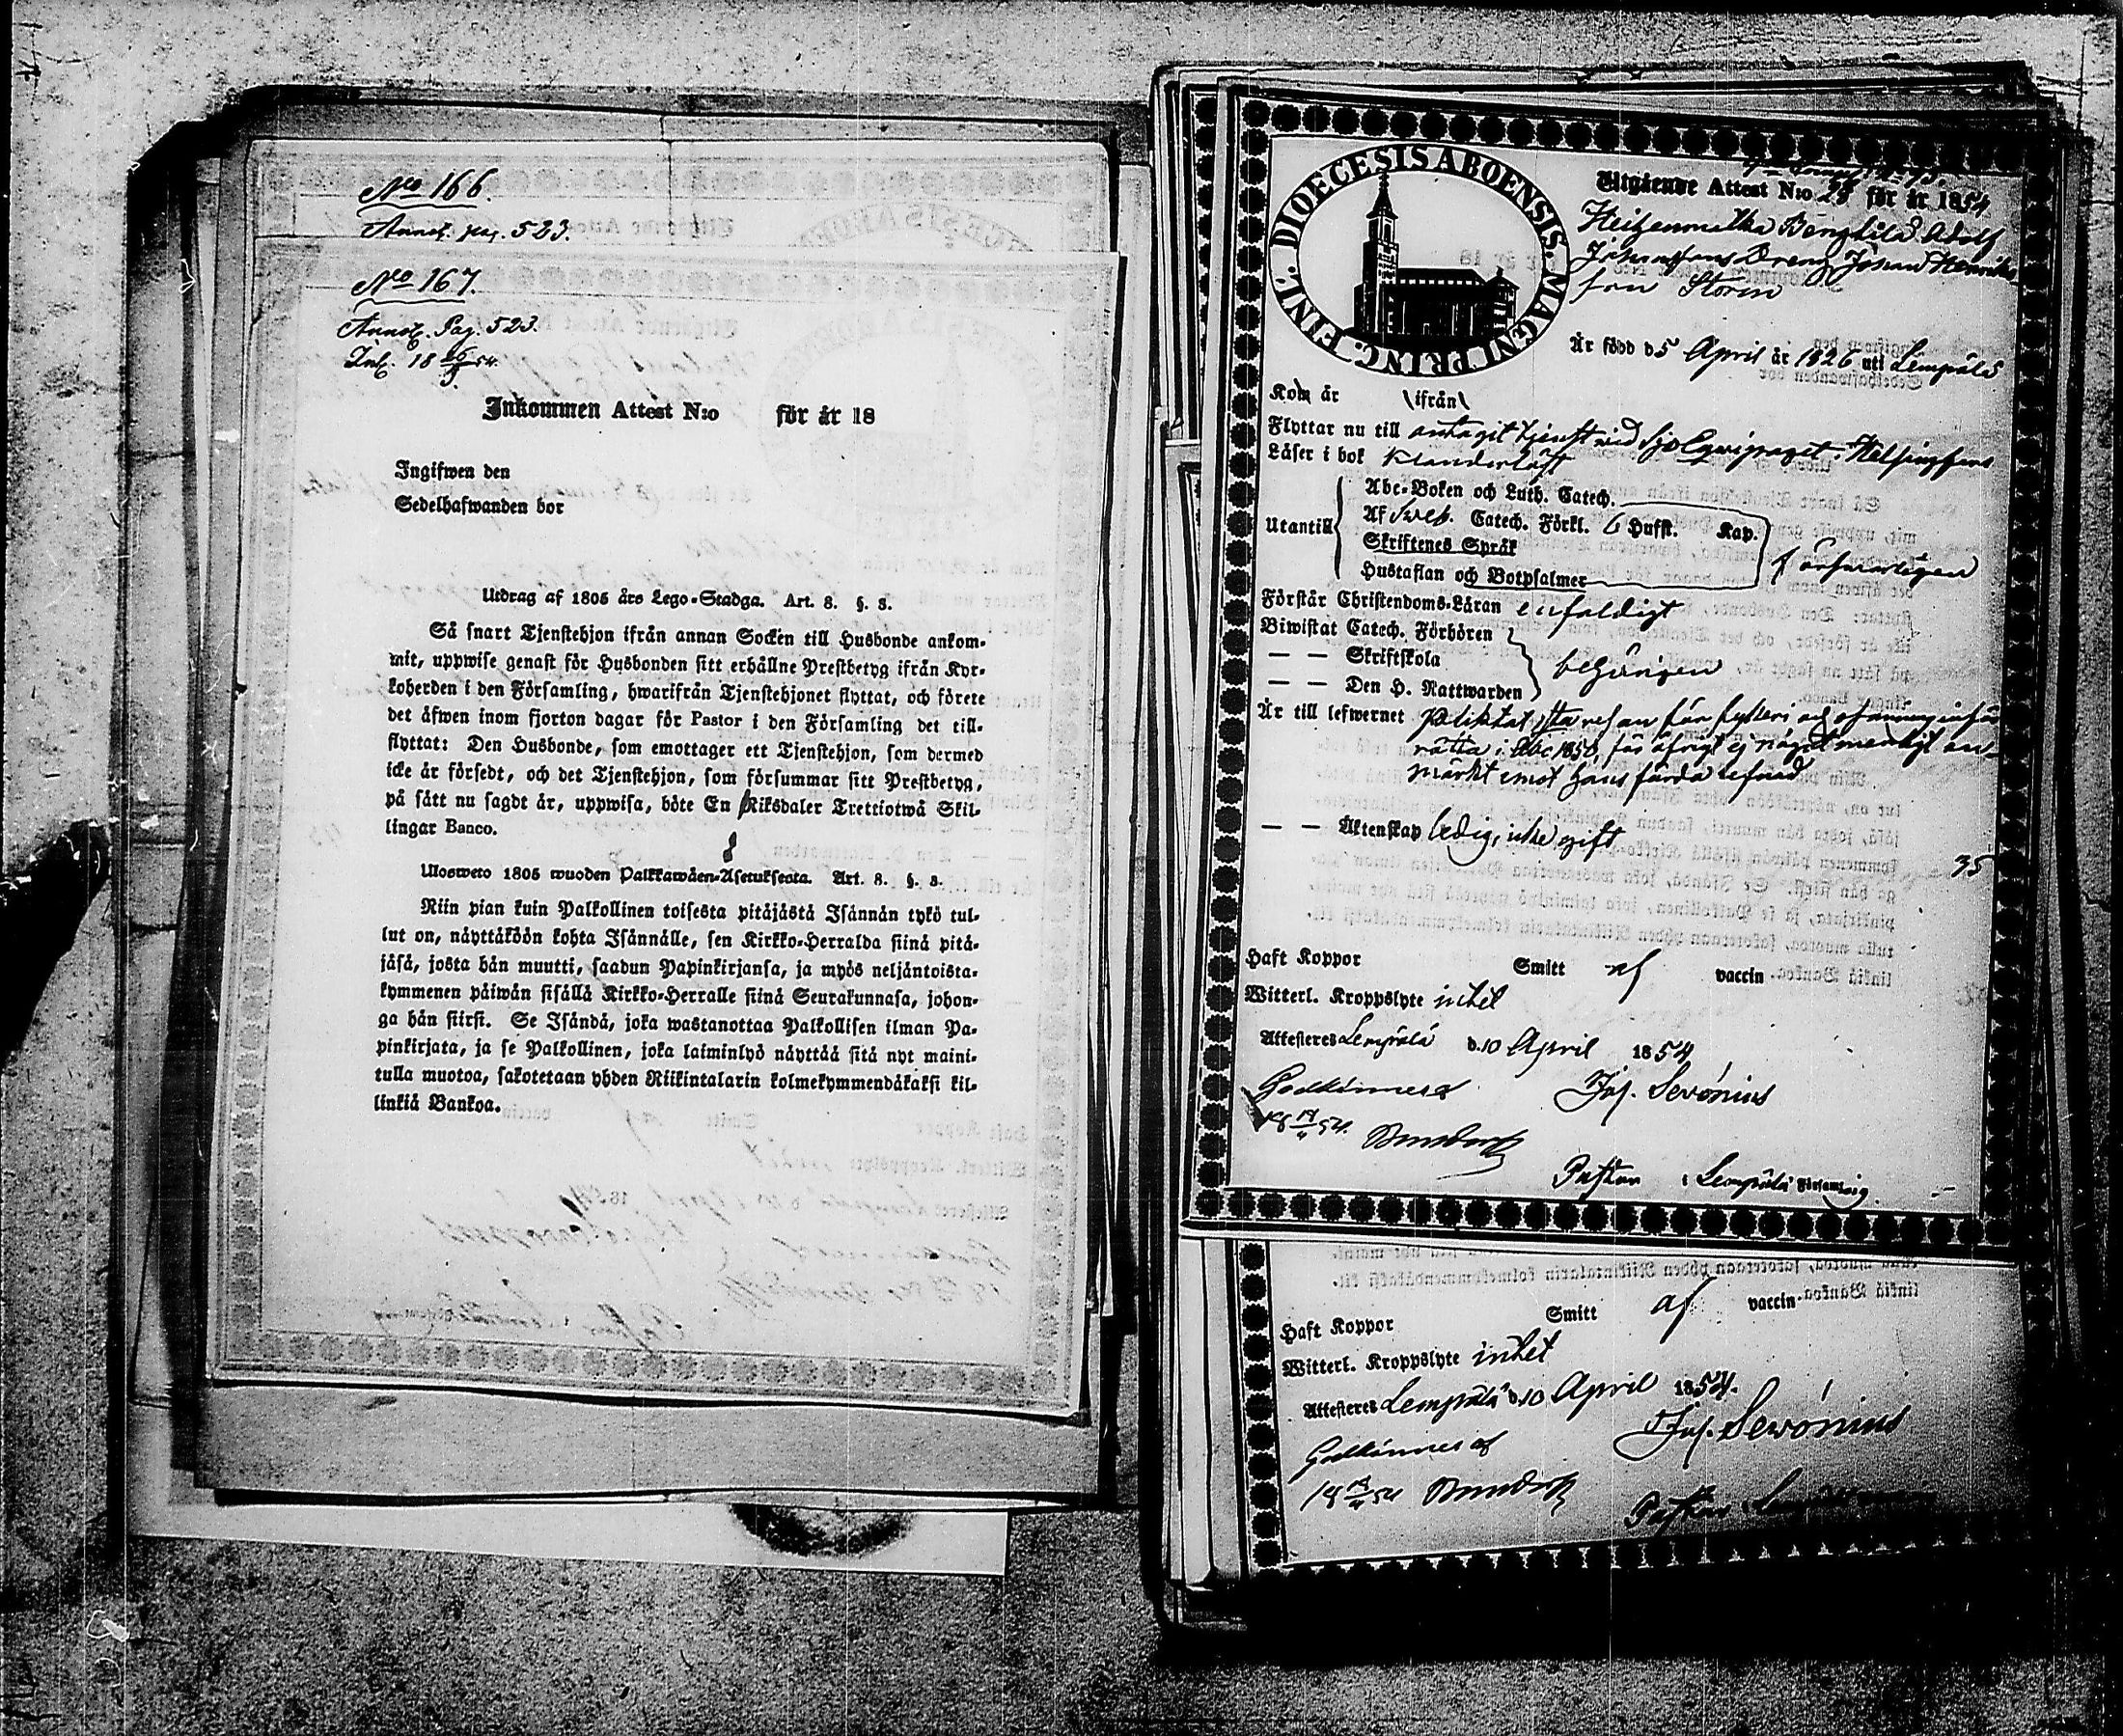 No 166.
Annot. pag. 523.
No 167.
Annot. Pag. 523.
Inl. 18 54.
Inkommen Attest N:o för år 18
Ingifwen den
Sedelhafwanden bor
Utdrag af 1805 års Lego-Stadga. Art. 8. §. 8.
Så snart Tjenstehjon ifrån annan Socken till Husbonde ankom-
mit, uppwise genast för Husbonden sitt erhållne Prestbetyg ifrån Kyr-
koherden i den Församling, hwarifrån Tjenstehjonet flyttat, och förete
det äfwen inom fjorton dagar för Pastor i den Församling det till-
flyttat: Den Husbonde, som emottager ett Tjenstehjon, som dermed
icke är försedt, och det Tjenstehjon, som försummar sitt Prestbetyg,
på sätt nu sagdt är, uppwisa, böte En Riksdaler Trettiotwå Skil-
lingar Banco.
Ulosweto 1805 wuoden Palkkawäen-Asetuksesta. Art. 8. §. 8.
Niin pian kuin Palkollinen toisesta pitäjästä Isännän tykö tul-
lut on, näyttäköön kohta Isännälle, sen Kirkko-Herralda siinä pitä-
jäsä, josta hän muutti, saadun Papinkirjansa, ja myös neljäntoista-
kymmenen päiwän sisällä Kirkko-Herralle siinä Seurakunnasa, johon-
ga hän siirsi. Se Isändä, joka wastanottaa Palkollisen ilman Pa-
pinkirjata, ja se Palkollinen, joka laiminlyö näyttää sitä nyt maini-
tulla muotoa, sakotetaan yhden Riikintalarin kolmekymmendäkaksi kil-
linkiä Bankoa.
DIOECESIS ABOENSIS. MAGNI PRINC. FINL.
Utgående Attest N:o 28 för år 1854
Bengtilä Adolf
Johanssons Dreng Johan Henriks
son Storm
Är född d 5 April år 1826 uti Lempälä
Kom år ifrån
Flyttar nu till antagit tjenst wid Sjö Equipaget i Helsingfors
Läser i bok klanderlöst
Utantill
Abc-Boken och Luth. Catech.
Af Sweb. Catech. Förkl. 6 Hufst. Kap.
Skriftenes Språk
Hustaflan och Botpsalmer
försvarligen
Förstår Christendoms-Läran enfaldigt
Biwistat Catech. Förhören
— — Skriftskola
— — Den H. Nattwarden
behörigen
Är till lefwernet pliktat för fylleri och inför
rätta i 1850, för öfrigt ej något menligt an-
märkt emot hans förda lefnad
— — Äktenskap ledig, icke gift
35
Haft Koppor Smitt af vaccin
Witterl. Kroppslyte intet
Attesteras Lempälä d. 10 April 1854
Jos. Servónius
Godkännes af
18 54.
Pastor i Lempälä Församling.
Haft Koppor Smitt af vaccin
Witterl. Kroppslyte intet
Attesteres Lempälä d. 10 April 1854.
Jos. Servónius
Godkännes af
18 54
Pastor